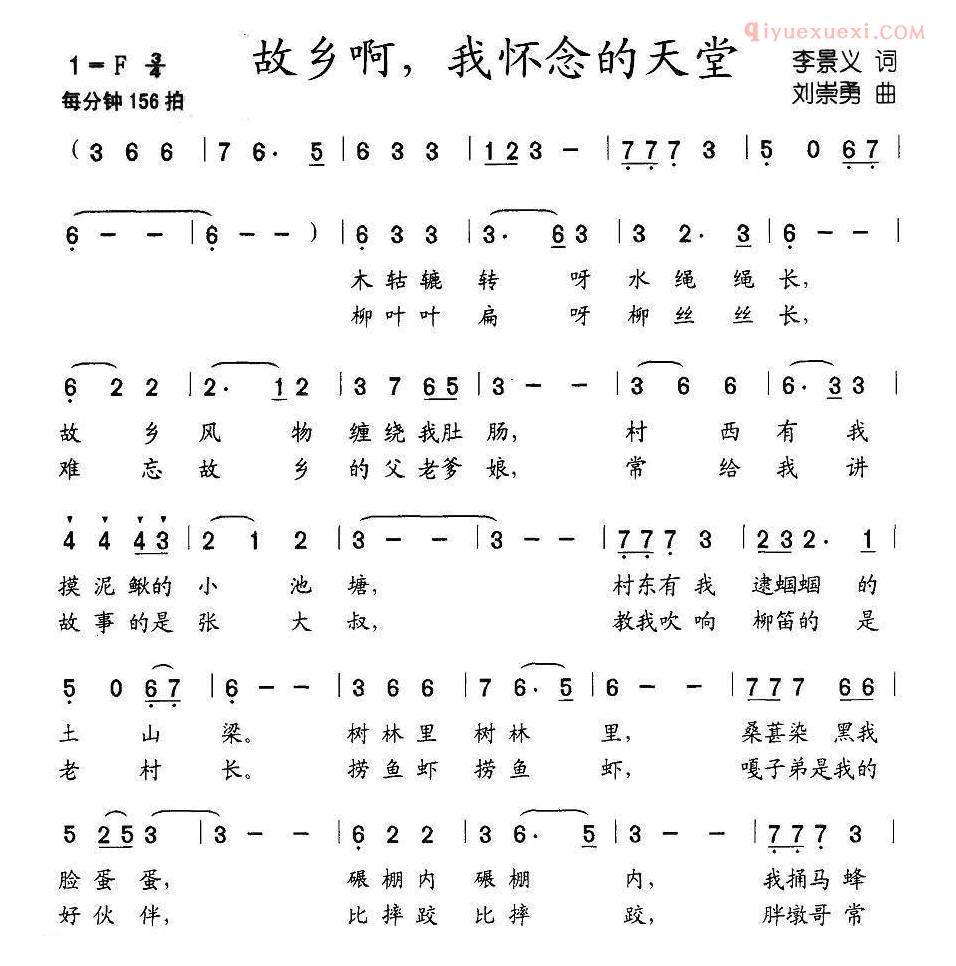 Qiyuexuexi.com
故乡啊，我怀念的天堂
1=F 3/4
李景义 词
每分钟156拍
刘崇勇 曲
(3 6 6 | 7 6· 5 | 6 3 3 | 1 2 3 - | 7 7 7 3 | 5 0 6 7 |
6 - - | 6 - - ) | 6 3 3 | 3· 6 3 | 3 2· 3 | 6 - - |
木轱辘转呀水绳绳长，
柳叶叶扁呀柳丝丝长，
6 2 2 | 2· 1 2 | 3 7 6 5 | 3 - - | 3 6 6 | 6· 3 3 |
故乡风物缠绕我肚肠，村西有我
难忘故乡的父老爹娘，常给我讲
4 4 4 3 | 2 1 2 | 3 - - | 3 - - | 7 7 7 3 | 2 3 2· 1 |
摸泥鳅的小池塘，村东有我逮蝈蝈的
故事的是张大叔，教我吹响柳笛的是
5 0 6 7 | 6 - - | 3 6 6 | 7 6· 5 | 6 - - | 7 7 7 6 6 |
土山梁。树林里树林里，桑葚染黑我
老村长。捞鱼虾捞鱼虾，嘎子弟是我的
5 2 5 3 | 3 - - | 6 2 2 | 3 6· 5 | 3 - - | 7 7 7 3 |
脸蛋蛋，碾棚内碾棚内，我捅马蜂
好伙伴，比摔跤比摔跤，胖墩哥常